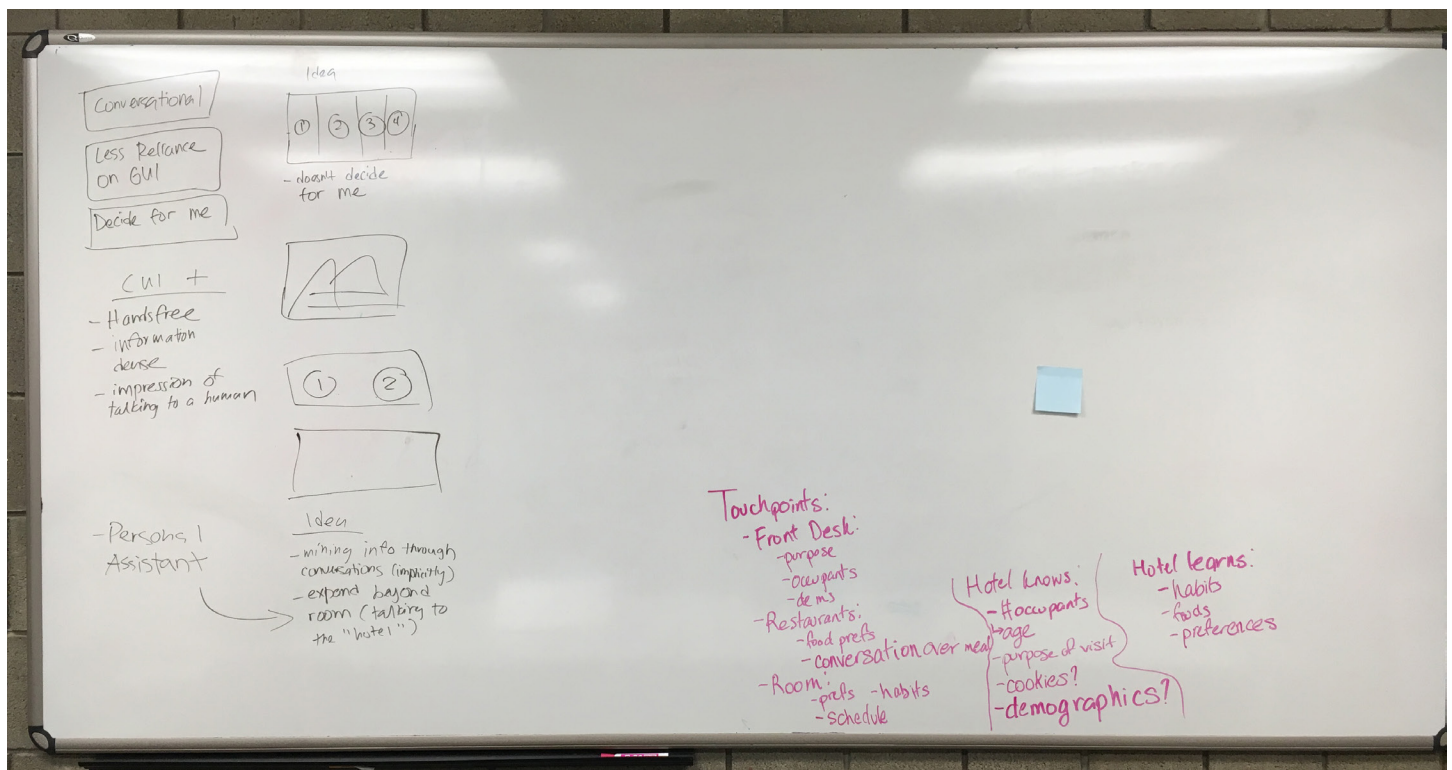 Conversational
Less Reliance
on GUI
Decide for me
CUI +
- Handsfree
- information
dense
- impression of
talking to a human
- Personal
Assistant
Idea
1 2 3 4
- doesn't decide
for me
1 2
Idea
- mining info through
conversations (implicitly)
- expand beyond
room (talking to
the "hotel")
Touchpoints:
- Front Desk:
- purpose
- occupants
- dems
- Restaurants:
- food prefs
- conversation over meal
- Room:
- prefs - habits
- schedule
Hotel knows:
- #occupants
↳ age
- purpose of visit
- cookies?
- demographics?
Hotel learns:
- habits
- foods
- preferences